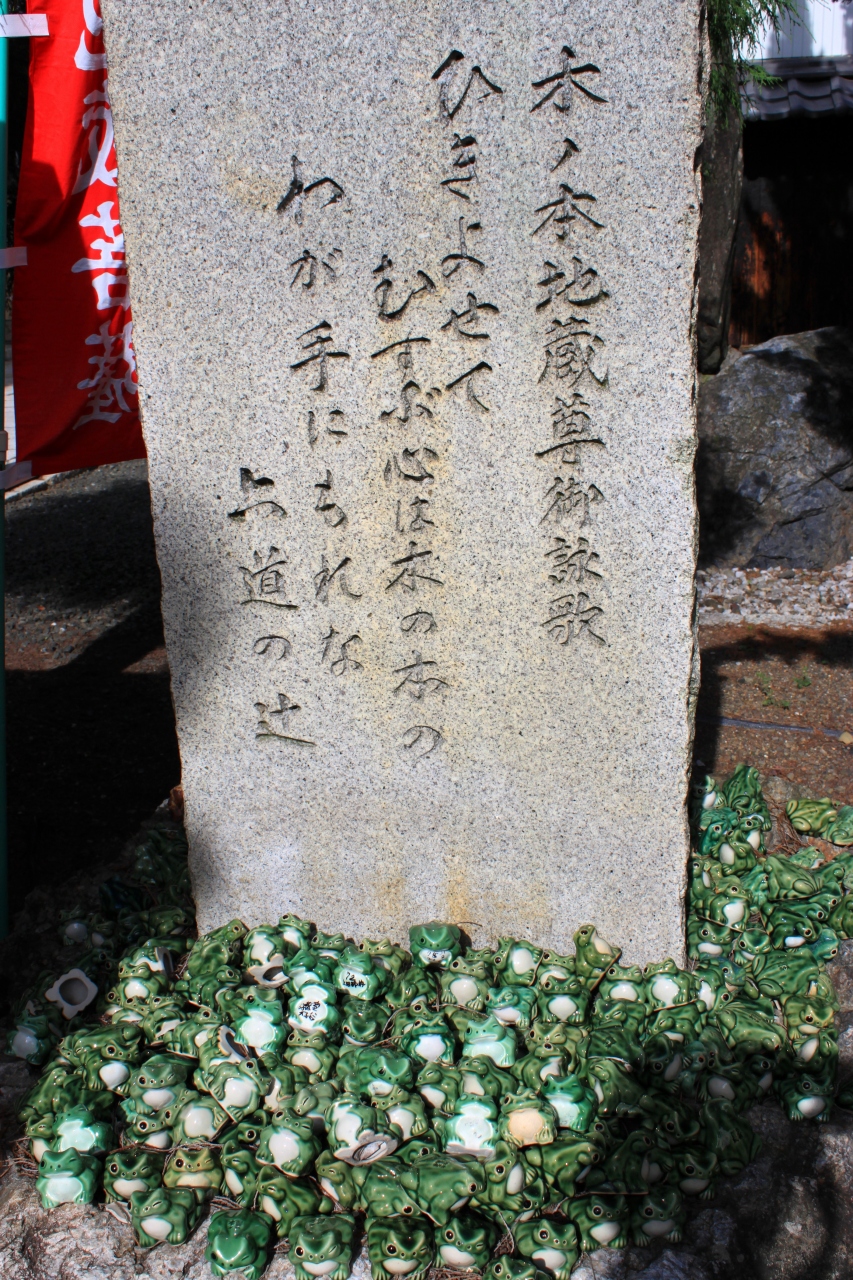 木ノ本地蔵尊御詠歌
ひきよせて
むすぶ心は木の木の
わが手にちれな
六道の辻